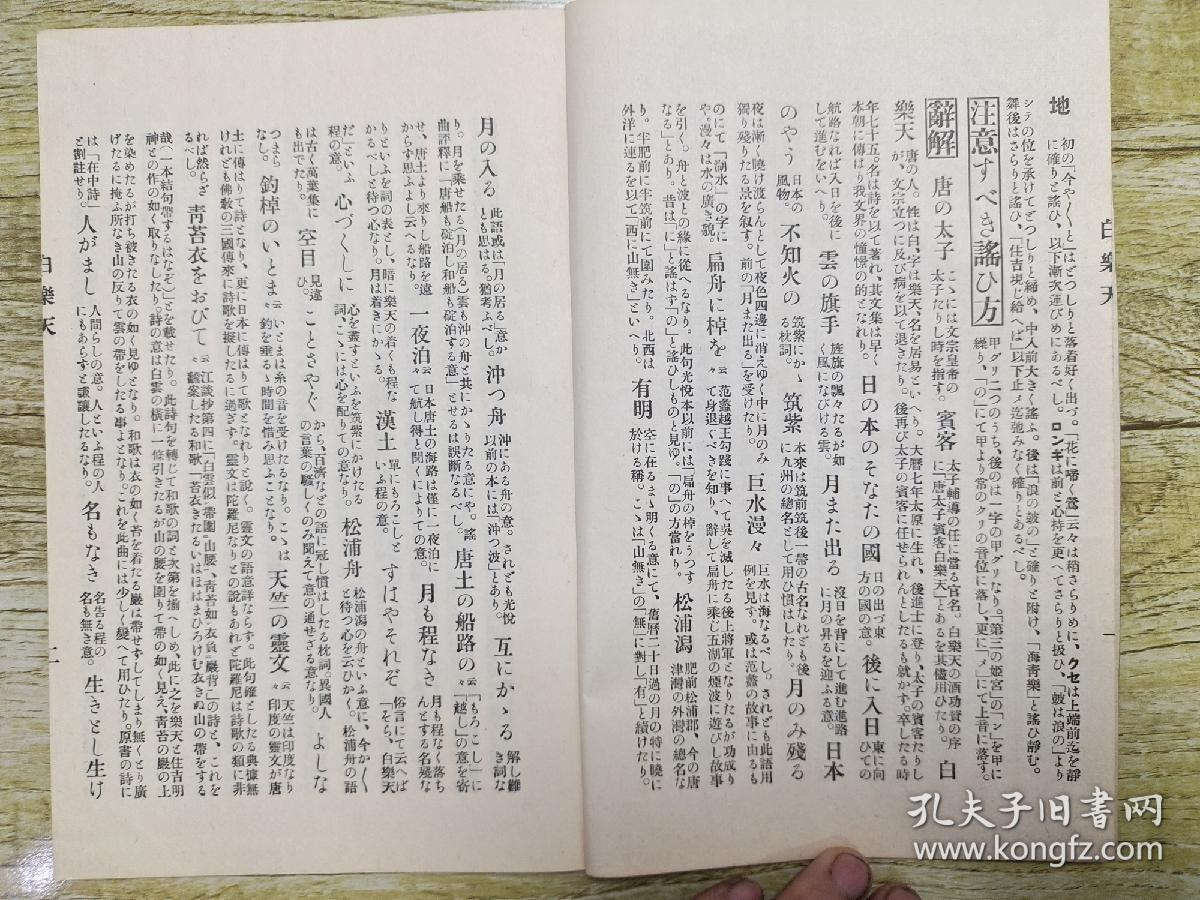 白樂天
一
地 初の「今やく\と」はどつしりと落着好く出づ。「花に啼く鶯」云々は稍さらりめに、クセは上端前迄を靜
に確りと謠ひ、以下漸次運びめにあるべし。ロンギは前と心持を更へてさらりと扱ひ、「皷は浪の」より
シテの位を承けてどつしりと締め、中人前大きく謠ふ。後は「浪の皷の」と確りと附け、「海靑樂」と謠ひ靜む。
舞後はさらりと謠ひ、「住吉現じ給へば」以下止メ迄弛みなく確りとあるべし。
注意すべき謠ひ方 甲グリ二つのうち、後のは一字の甲グリなり。「第三の姬宮」の「ン」を甲に
繰り、「の」にて甲より常のクリの音位に落し、更に「メ」にて上音に落す。
辭解 唐の太子 こゝには文宗皇帝の
太子たりし時を指す。
賓客 太子輔導の任に當る官名。白樂天の酒功賛の序
に「唐太子賓客白樂天」とあるを其儘用ひたり。
白
樂天 唐の人。性は白、字は樂天、名を居易といへり。大曆七年太原に生れ、後進士に登り、太子の賓客たりし
が、文宗立つに及び病を以て退きたり。後再び太子の賓客に任せられんとしたるも就かず。卒したる時
年七十五。名は詩を以て著れ、其文集は早く
本朝に傳はり我文界の憧憬の的となれり。
日の本のそなたの國 日の出づ東
方の國の意。
後に入日 東に向
ひての
航路なれば入日を後に
して進むをいへり。
雲の旗手 旌旗の飄々たるが如
く風になびける雲。
月また出る 沒日を背にして進む進路
に月の昇るを迎ふる意。
日本
のやう 日本の
風物。
不知火の 筑紫にかゝ
る枕詞。
筑紫 本來は筑前筑後一帶の古名なれども後
に九州の總名として用ひ慣はしたり。
月のみ殘る
夜は漸く曉け渡らんとして夜色四邊に消えゆく中に月のみ
獨り殘りたる景を叙す。前の「月また出る」を受けたり。
巨水漫々 巨水は海なるべし。されども此語用
例を見ず。或は范蠡の故事に由るも
のにて「湖水」の字に
や。漫々は水の廣き貌。
扁舟に棹を 々て 范蠡越王句踐に事へて吳を滅したる後上將軍となりたるが功成り
て身退くべきを知り、辭して扁舟に乘じ五湖の煙波に遊びし故事
を引く。舟と波との緣に從へるなり。此句光悅本以前には「扁舟の棹をうつす
なる」とあり。昔は「に」と謠はず「の」と謠ひしものと見ゆ。「の」の方當れり。
松浦潟 肥前松浦郡、今の唐
津灣の外灣の總名な
り。半肥前に半筑前にて圍みたり。北西は
外洋に連るを以て「西に山無き」といへり。
有明 空に在るまゝ明くる意にて、舊曆二十日過の月の特に曉に
於ける稱。こゝは「山無き」の「無」に對し「有」と續けたり。
月の入る 此語或は「月の居る」意か
とも思はる。猶考ふべし。
沖つ舟 沖にある舟の意。されども光悅
以前の本には「沖つ波」とあり。
互にかゝる 解し難
き詞な
り。月を乘せたる(月の居る)雲も沖の舟と共にかゝりたる意にや。謠
曲評釋に「唐船も碇泊し和船も碇泊する意」とせるは誤斷なるべし。
唐土の船路の 云々 「もろこし」に
「越し」の意を寄
せ、唐土より來りし船路を遠
からず思ふよしに云へるなり。
一夜泊 云々 日本唐土の海路は僅に一夜泊に
て航し得ると聞くによりての意。
月も程なき 月も程なく落ち
んとする名殘な
りといふを詞の表とし、暗に樂天の着くも程な
かるべしと待つ心なり。月は着きにかゝる。
漢土 單にもろこしと
いふ程の意。
すはやそれぞ 俗言にて云へば
「そら、白樂天
だ」といふ
程の意。
心づくしに 心を盡すといふを筑紫にかけたる
詞、こゝには心を配りての意なり。
松浦舟 松浦潟の舟といふ意に、今かく\
と待つ心を云ひかく。松浦舟の語
は古く萬葉集に
も出でたり。
空目 見違
ことさやぐ から、百濟などの語に冠し慣はしたる枕詞。異國人
の言葉の騷しくのみ聞えて意の通せざる意なり。
よしな
つまら
なし。
釣棹のいとま 云々 いとまは糸の音を受けたるなり。こゝは
釣を垂るゝ時間を惜み思ふことなり。
天竺の靈文 云々 天竺は印度なり
印度の靈文が唐
土に傳はりて詩となり、更に日本に傳はりて歌となれりと說く。靈文の語意詳ならず。此句確としたる典據無
けれども佛敎の三國傳來に詩歌を擬したるに過ぎず。靈文は陀羅尼なりとの說もあれど陀羅尼は詩歌の類に非
れば然らざ
るべし。
靑苔衣をおびて 云々 江談抄第四に「白雲似帶圍山腰、靑苔如衣負巖背」の詩と、これを
飜案したる和歌「苔衣きたるいはほはまひろけむ衣きぬ山の帶をする
哉(一本結句帶するはなぞ)」とを載せたり。此詩句を轉じて和歌の詞と次第を揃へしめ、此に之を樂天と住吉明
神との作の如く取りなしたり。詩の意は白雲の橫に一條引きたるが山の腰を圍りて帶の如く見え、靑苔の巖の上
を染めたるが打ち被きたる衣の如く見ゆとなり。和歌は衣の如く苔を着たる巖は帶せずしてしまり無くひとり廣
げたるに掩ふ所なき山の反りて雲の帶をしたる事よとなり。これを此曲には少しく變へて用ひたり。原書の詩に
は「在中詩」
と割註せり。
人がまし 人間らしの意。人といふ程の人
にもあらずと謙讓したるなり。
名もなき 名告る程の
名も無き意。
生きとし生け
白樂天
二
孔夫子旧书网
www.kongfz.com